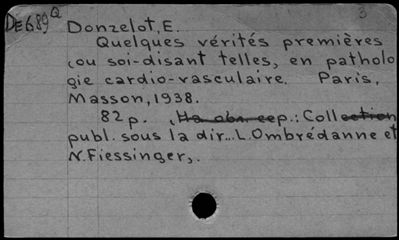 DE689Q
3
Donzelot, E.
Quelques vérités premières
(ou soi-disant telles, en patholo
gie cardio-vasculaire. Paris,
Masson, 1938.
82p. p.: Collection
publ. sous la dir.. L. Ombrédanne et
N. Fiessinger,.